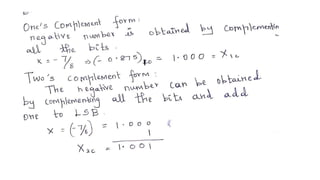 One's complement form:
negative number is obtained by complementin
all the bits.
x = -7/8 ⇒ (-0.875)10 = 1.000 = X1c
Two's complement form:
The negative number can be obtained
by complementing all the bits and add
one to LSB.
X = (-7/8) = 1.000
1
X2c = 1.001